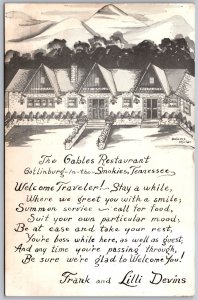 The Gables Restaurant
Gatlinburg-in-the-Smokies, Tennessee
Welcome Traveler! Stay a while,
Where we greet you with a smile;
Summon service - call for food,
Suit your own particular mood,
Be at ease and take your rest,
You're boss while here, as well as guest,
And any time you're passing through,
Be sure we're glad to Welcome You!
Frank and Lilli Devins